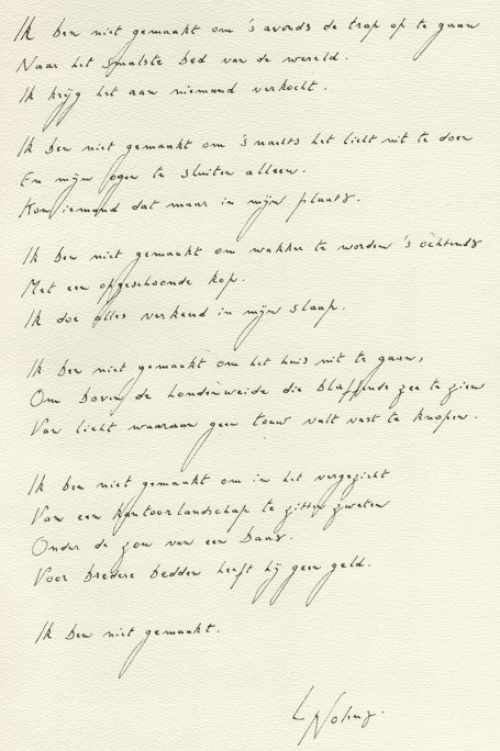 Ik ben niet gemaakt om 's avonds de trap op te gaan
Naar het smalste bed van de wereld.
Ik krijg het aan niemand verkocht.
Ik ben niet gemaakt om 's nachts het licht uit te doen
En mijn ogen te sluiten alleen.
Kon iemand dat maar in mijn plaats.
Ik ben niet gemaakt om wakker te worden 's ochtends
Met een opgeschoonde kop.
Ik doe alles verkeerd in mijn slaap.
Ik ben niet gemaakt om het huis uit te gaan,
Om boven de hondenweide die blaffende zee te zien
Van licht waaraan geen touw valt vast te knopen.
Ik ben niet gemaakt om in het vergezicht
Van een kantoorlandschap te zitten zweten
Onder de zon van een baas.
Voor bredere bedden heeft hij geen geld.
Ik ben niet gemaakt.
L Nolens.